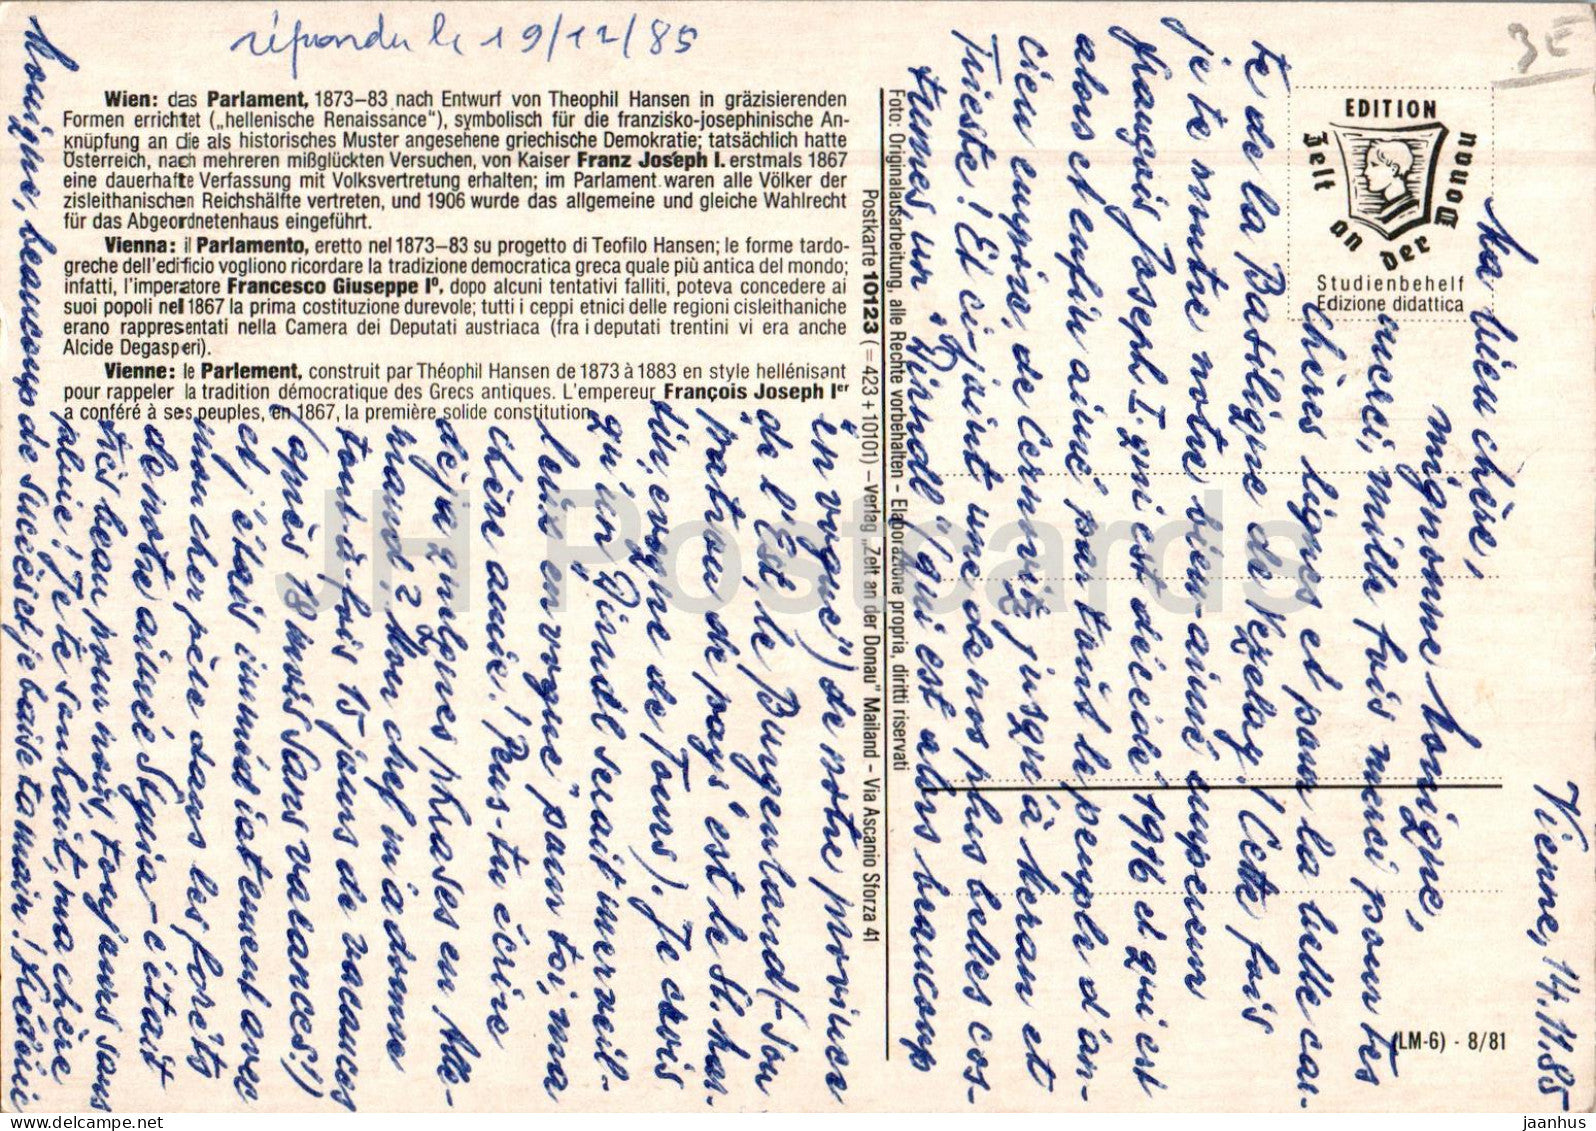 répondu le 19/12/85
3E
Wien: das Parlament, 1873–83 nach Entwurf von Theophil Hansen in gräzisierenden
Formen errichtet („hellenische Renaissance"), symbolisch für die franzisko-josephinische An-
knüpfung an die als historisches Muster angesehene griechische Demokratie; tatsächlich hatte
Österreich, nach mehreren mißglückten Versuchen, von Kaiser Franz Joseph I. erstmals 1867
eine dauerhafte Verfassung mit Volksvertretung erhalten; im Parlament waren alle Völker der
zisleithanischen Reichshälfte vertreten, und 1906 wurde das allgemeine und gleiche Wahlrecht
für das Abgeordnetenhaus eingeführt.
Vienna: il Parlamento, eretto nel 1873–83 su progetto di Teofilo Hansen; le forme tardo-
greche dell'edificio vogliono ricordare la tradizione democratica greca quale più antica del mondo;
infatti, l'imperatore Francesco Giuseppe I°, dopo alcuni tentativi falliti, poteva concedere ai
suoi popoli nel 1867 la prima costituzione durevole; tutti i ceppi etnici delle regioni cisleithaniche
erano rappresentati nella Camera dei Deputati austriaca (fra i deputati trentini vi era anche
Alcide Degasperi).
Vienne: le Parlement, construit par Théophil Hansen de 1873 à 1883 en style hellénisant
pour rappeler la tradition démocratique des Grecs antiques. L'empereur François Joseph Ier
a conféré à ses peuples, en 1867, la première solide constitution.
Foto: Originalausarbeitung, alle Rechte vorbehalten – Elaborazione propria, diritti riservati
Postkarte 10123 (= 423 + 10101) – Verlag „Zelt an der Donau" Mailand – Via Ascanio Sforza 41
EDITION
Zelt an der Donau
Studienbehelf
Edizione didattica
(LM-6) - 8/81
Vienne, 14.11.85
Ma bien chère,
mignonne Monique,
merci, mille fois merci pour tes
chères lignes et pour la belle car-
te de la Basilique de Vézelay! Cette fois
je te montre notre bien-aimé empereur
François Joseph I. qui est décédé 1916 et qui est
alors et enfin aimé par tout le peuple d'an-
cien empire, de Cernoviz jusqu'à Meran et
Trieste! Et ci-joint une de nos plus belles cos-
tumes, un "Dirndl" (qui est alors beaucoup
en vogue) de notre province
de l'Est, le Burgenland (-son
patron de pays est le St. Mar-
tin, evêque de Tours). Je crois
qu'un Dirndl serait merveil-
leux "en vogue" pour toi, ma
chère amie! Peus-tu écrire
déja quelques phrases en Alle-
mand? Mon chef m'a donné
tout-à-fois 15 jours de vacances
(après 18 mois sans vacances!)
et j'étais immédiatement avec
mon cher père dans les forêts
de notre aimée Styria – c'était
très beau pour nous, toujours sans
pluie! Je te souhait, ma chère
Monique, beaucoup de succès et je baise ta main! Frédéric
JH Postcards
www.delcampe.net
jaanhus